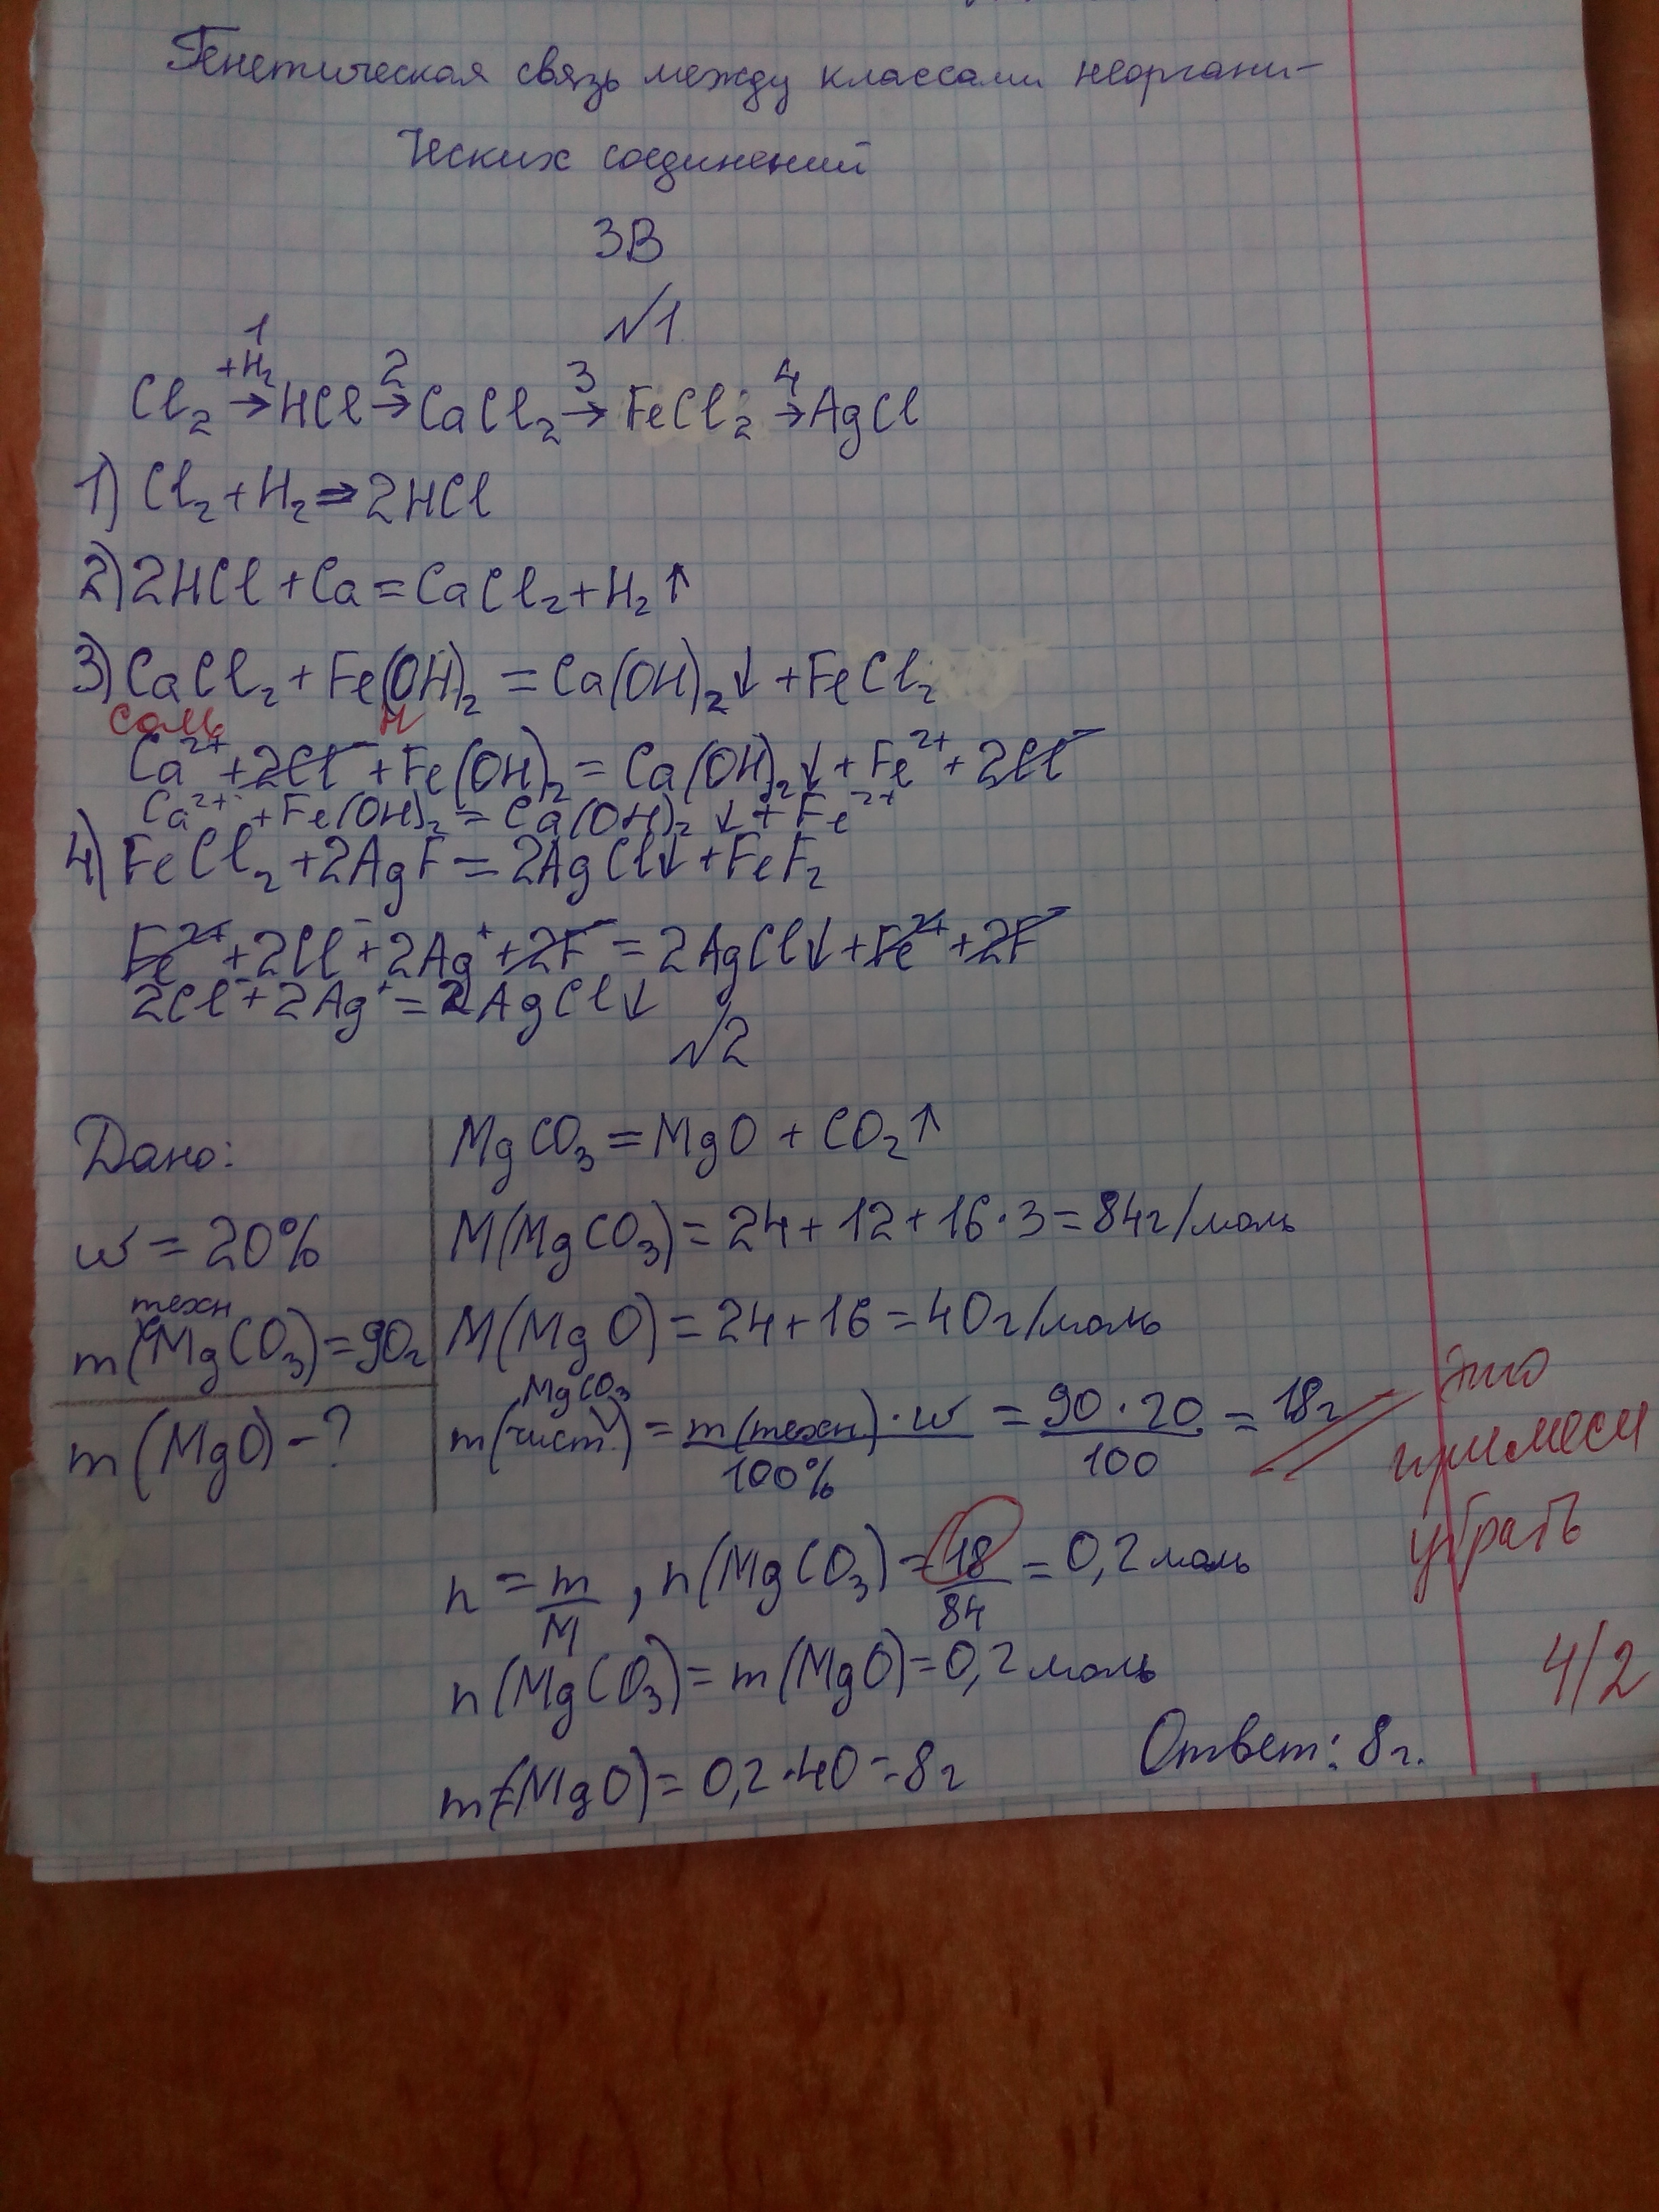 Генетическая связь между классами неоргани-
ческих соединений
3В
№1
1 2 3 4
Cl₂ +H₂→ HCl → CaCl₂ → FeCl₂ → AgCl
1) Cl₂ + H₂ = 2HCl
2) 2HCl + Ca = CaCl₂ + H₂↑
3) CaCl₂ + Fe(OH)₂ = Ca(OH)₂↓ + FeCl₂
соль н
Ca²⁺ + 2Cl⁻ + Fe(OH)₂ = Ca(OH)₂↓ + Fe²⁺ + 2Cl⁻
Ca²⁺ + Fe(OH)₂ = Ca(OH)₂↓ + Fe²⁺
4) FeCl₂ + 2AgF = 2AgCl↓ + FeF₂
Fe²⁺ + 2Cl⁻ + 2Ag⁺ + 2F⁻ = 2AgCl↓ + Fe²⁺ + 2F⁻
2Cl⁻ + 2Ag⁺ = 2AgCl↓
№2
Дано:
w = 20%
техн
m(MgCO₃) = 90г
m(MgO) - ?
MgCO₃ = MgO + CO₂↑
M(MgCO₃) = 24 + 12 + 16 · 3 = 84г/моль
M(MgO) = 24 + 16 = 40г/моль
MgCO₃
m(чист.) = m(техн.) · w / 100% = 90 · 20 / 100 = 18г
это
примеси
убрать
n = m/M, n(MgCO₃) = 18/84 = 0,2 моль
n(MgCO₃) = m(MgO) = 0,2 моль
4/2
m(MgO) = 0,2 · 40 = 8г
Ответ: 8 г.